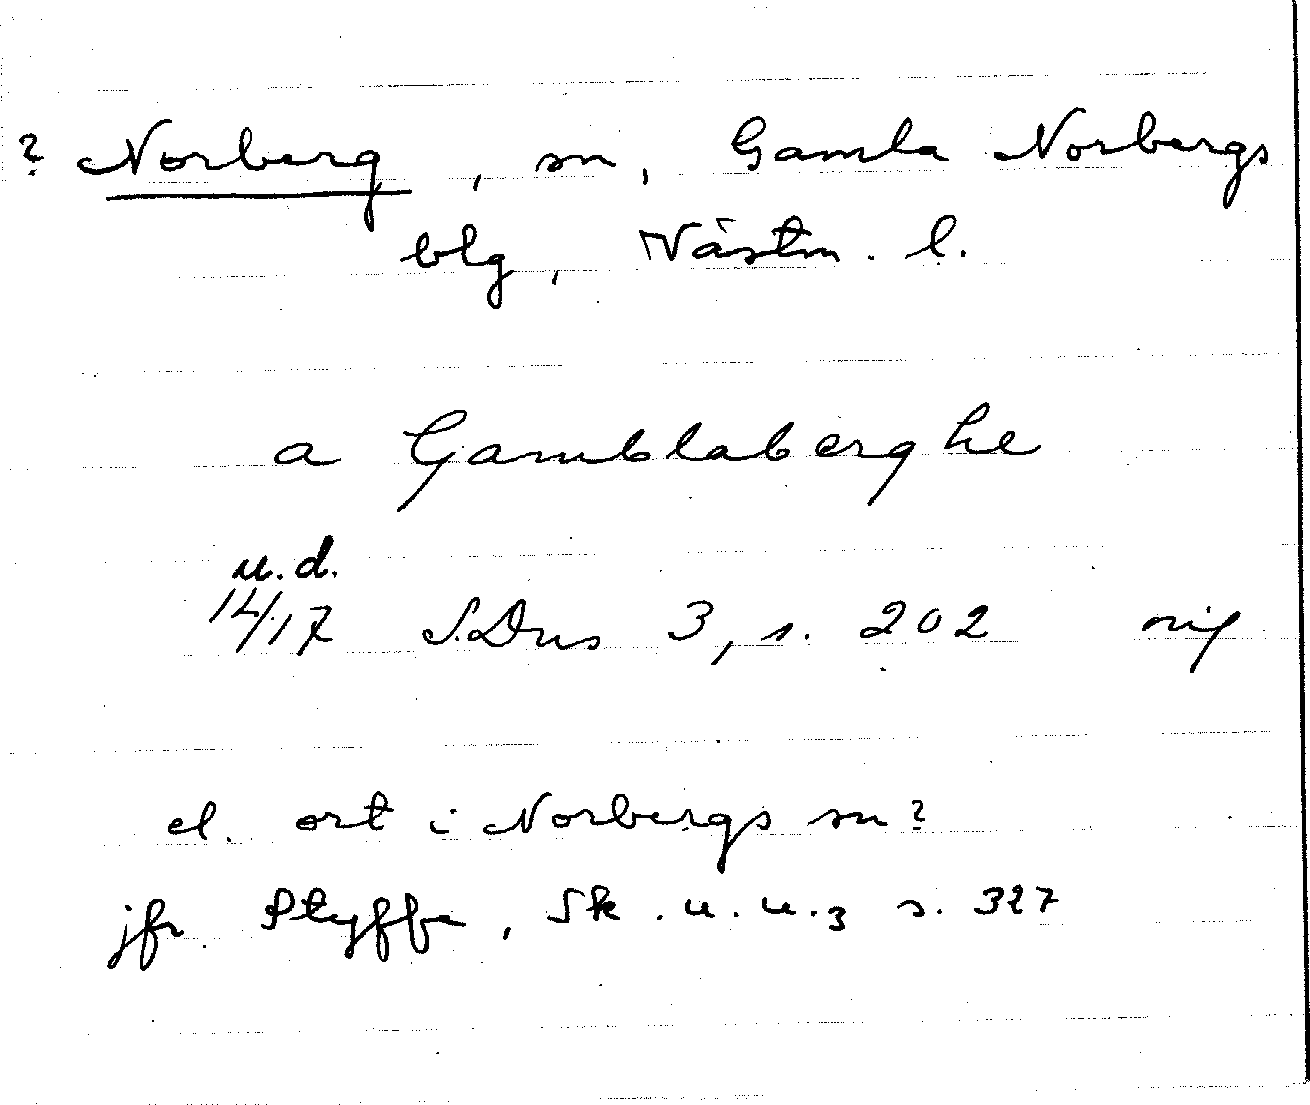 ? Norberg, sn, Gamla Norbergs
blg, Västm. l.
a Gamblaberghe
u.d.
14/17 S.Dns 3, s. 202 orig
el. ort i Norbergs sn?
jfr Styffe, Sk. u. u.3 s. 327